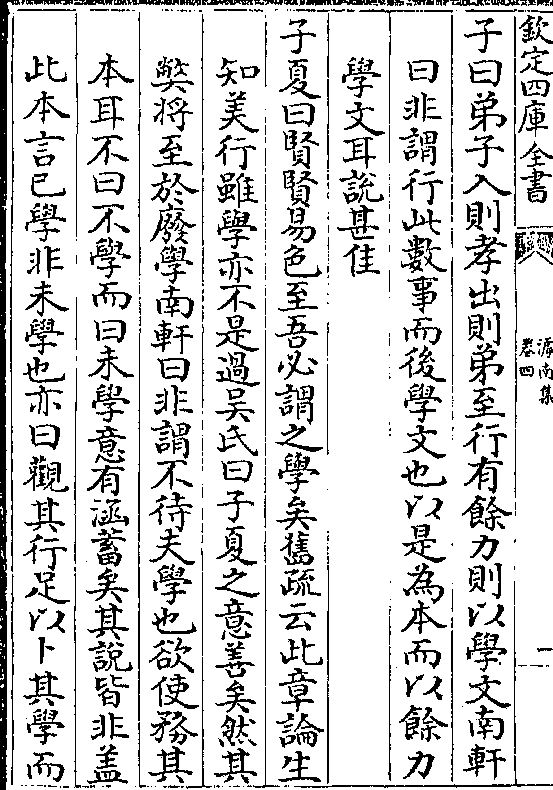 欽定四庫全書
滹南集
卷四
一
子曰弟子入則孝出則弟至行有餘力則以學文南軒
曰非謂行此數事而後學文也以是為本而以餘力
學文耳說甚佳
子夏曰賢賢易色至吾必謂之學矣舊疏云此章論生
知美行雖學亦不是過吳氏曰子夏之意善矣然其
弊將至於廢學南軒曰非謂不待夫學也欲使務其
本耳不曰不學而曰未學意有涵蓄矣其說皆非盖
此本言已學非未學也亦曰觀其行足以卜其學而